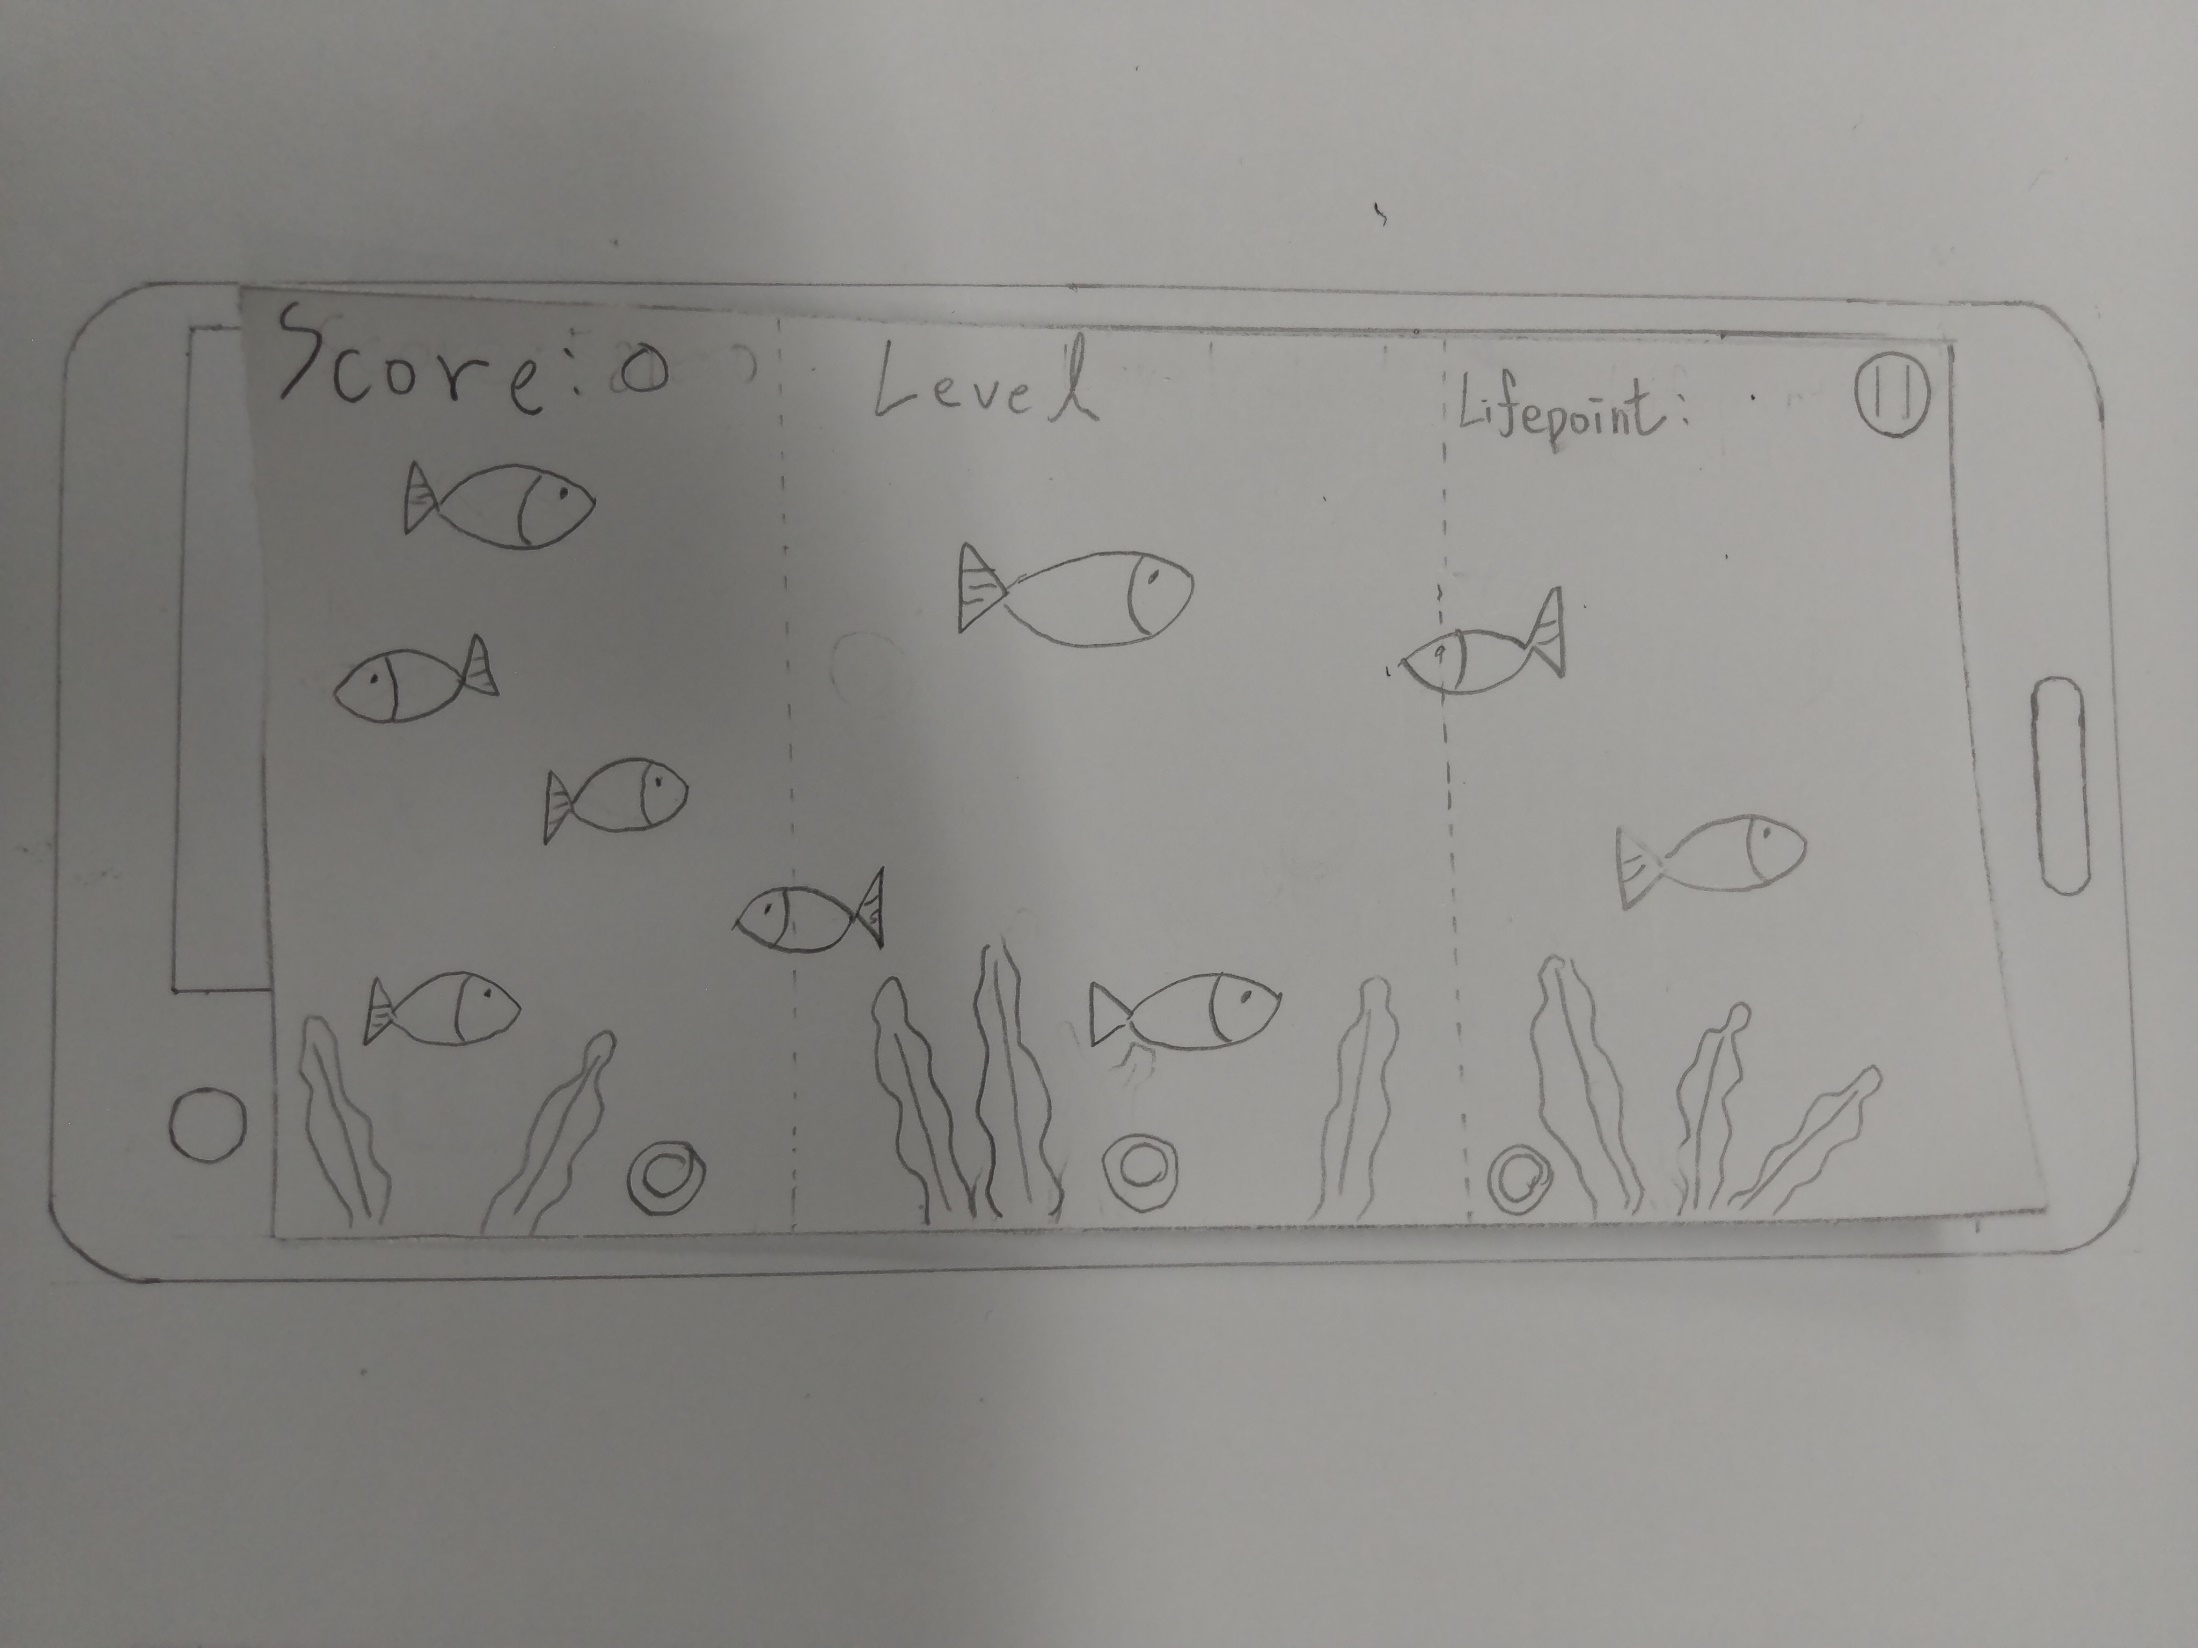 Score: 0
Level
Lifepoint: